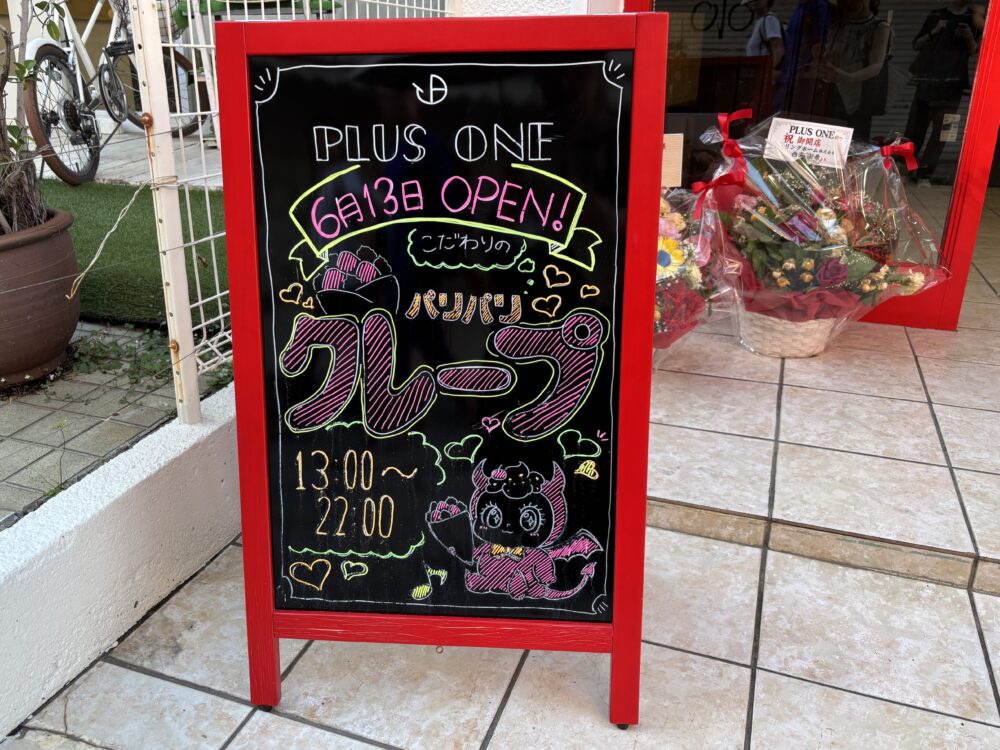 PLUS ONE
6月13日 OPEN!
こだわりの
パリパリ
クレープ
13:00～
22:00
PLUS ONE
祝 御開店
リングホーム